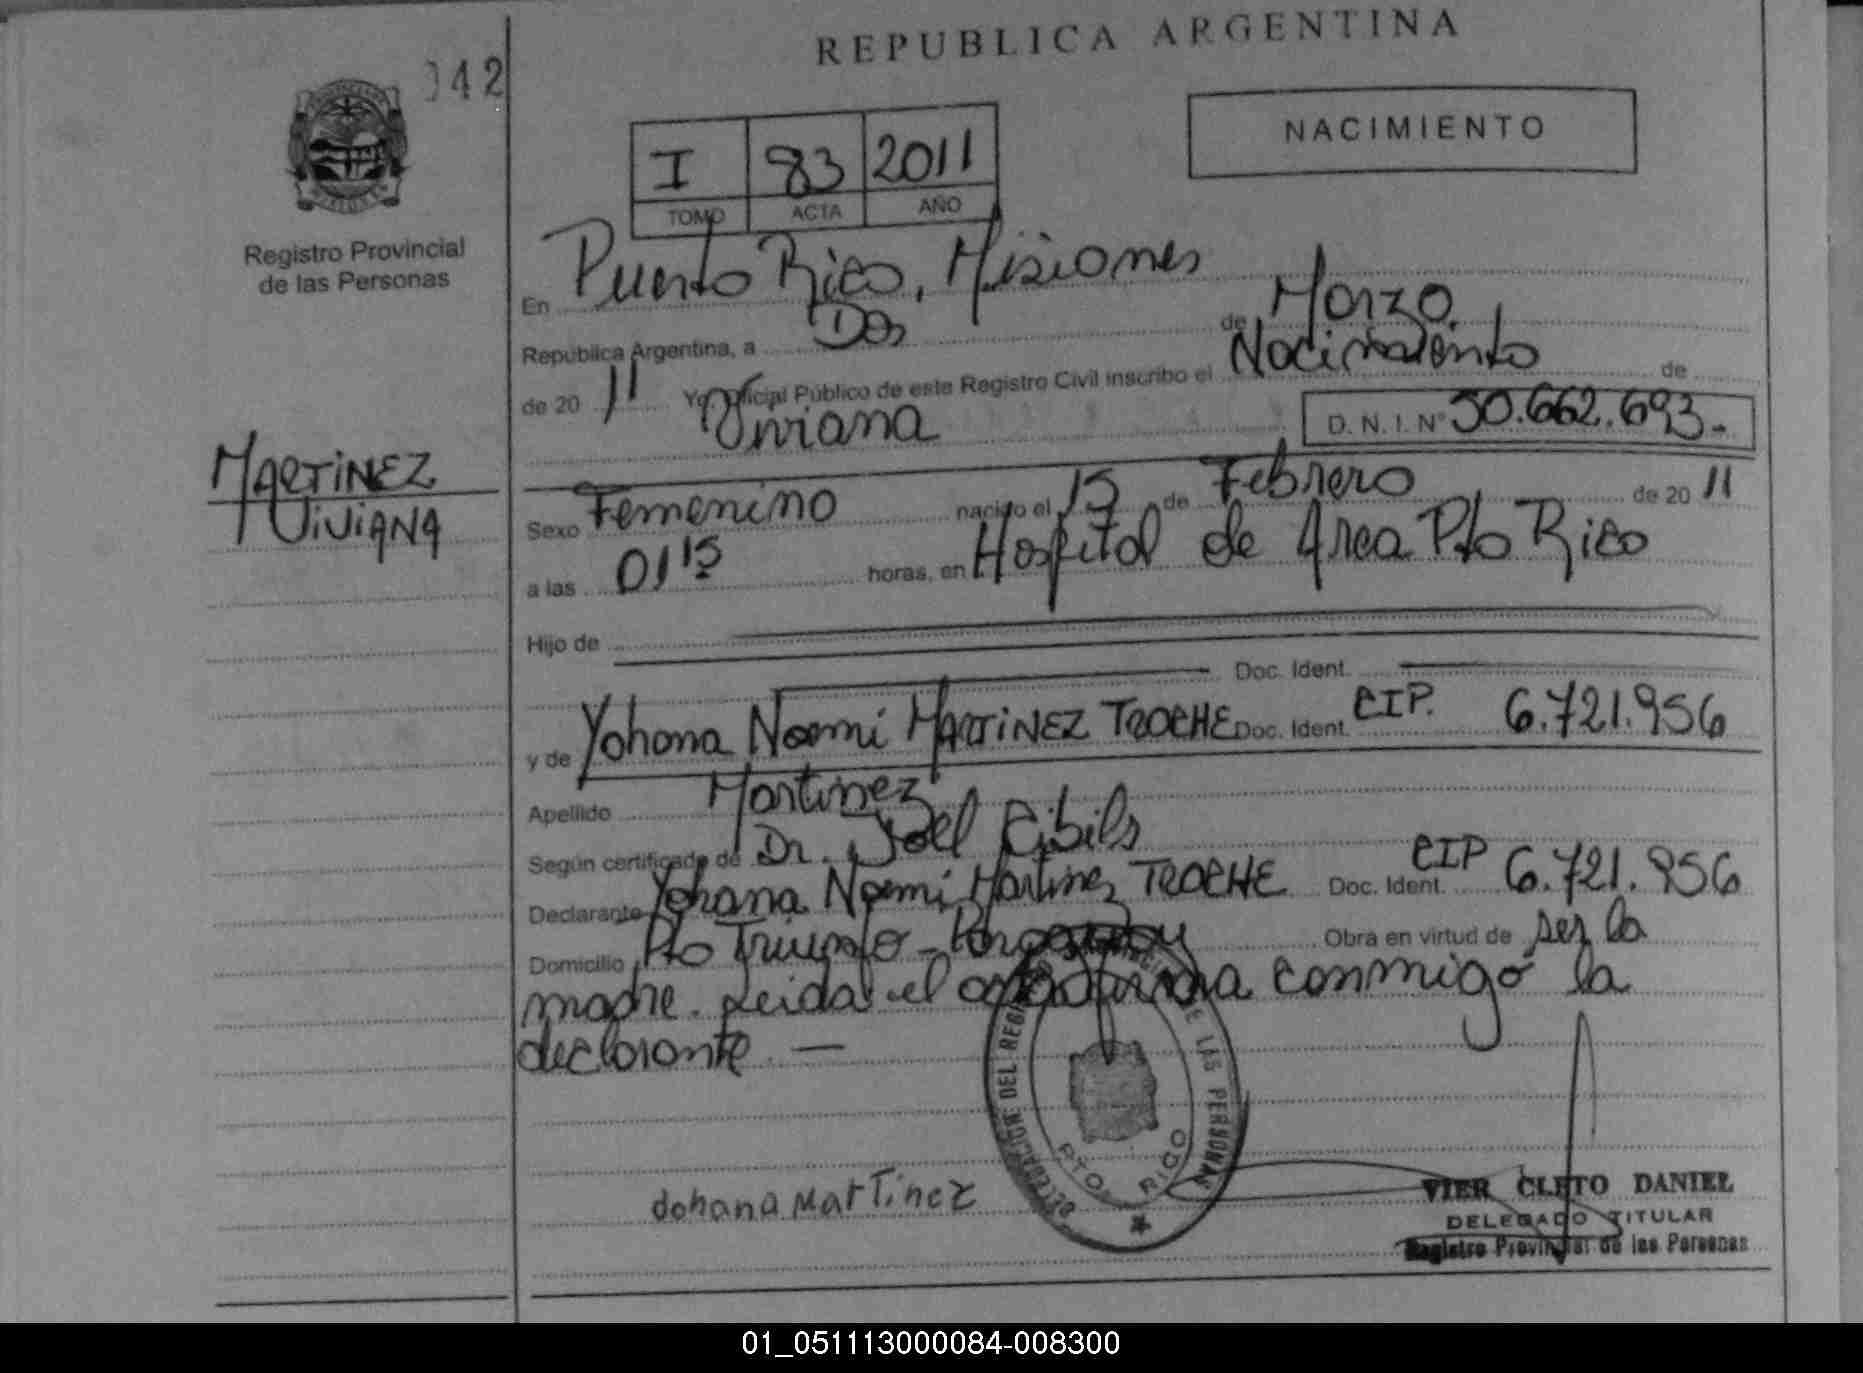 REPUBLICA ARGENTINA
042
NACIMIENTO
I 83 2011
TOMO ACTA AÑO
Registro Provincial
de las Personas
MARTINEZ
VIVIANA
En Puerto Rico, Misiones
República Argentina, a Dos de Marzo
de 20 11 Yo, Oficial Público de este Registro Civil inscribo el Nacimiento de
Viviana D. N. I. Nº 50.662.693.-
Sexo Femenino nacido el 15 de Febrero de 20 11
a las 01 15 horas, en Hospital de Area Pto Rico
Hijo de
Doc. Ident.
y de Yohana Noemi MARTINEZ TROCHE Doc. Ident. CIP. 6.721.956
Apellido Martinez
Según certificado de Dr. Joel Cibils
Declarante Yohana Noemi Martinez TROCHE Doc. Ident. CIP 6.721.956
Domicilio Pto Triunfo - Paraguay Obra en virtud de ser la
madre. Leida el acta firma conmigo la
declarante. —
DELEGACION DEL REGISTRO PROVINCIAL DE LAS PERSONAS
PTO. RICO
Johana Martinez
VIER CLETO DANIEL
DELEGADO TITULAR
Registro Provincial de las Personas
01_051113000084-008300